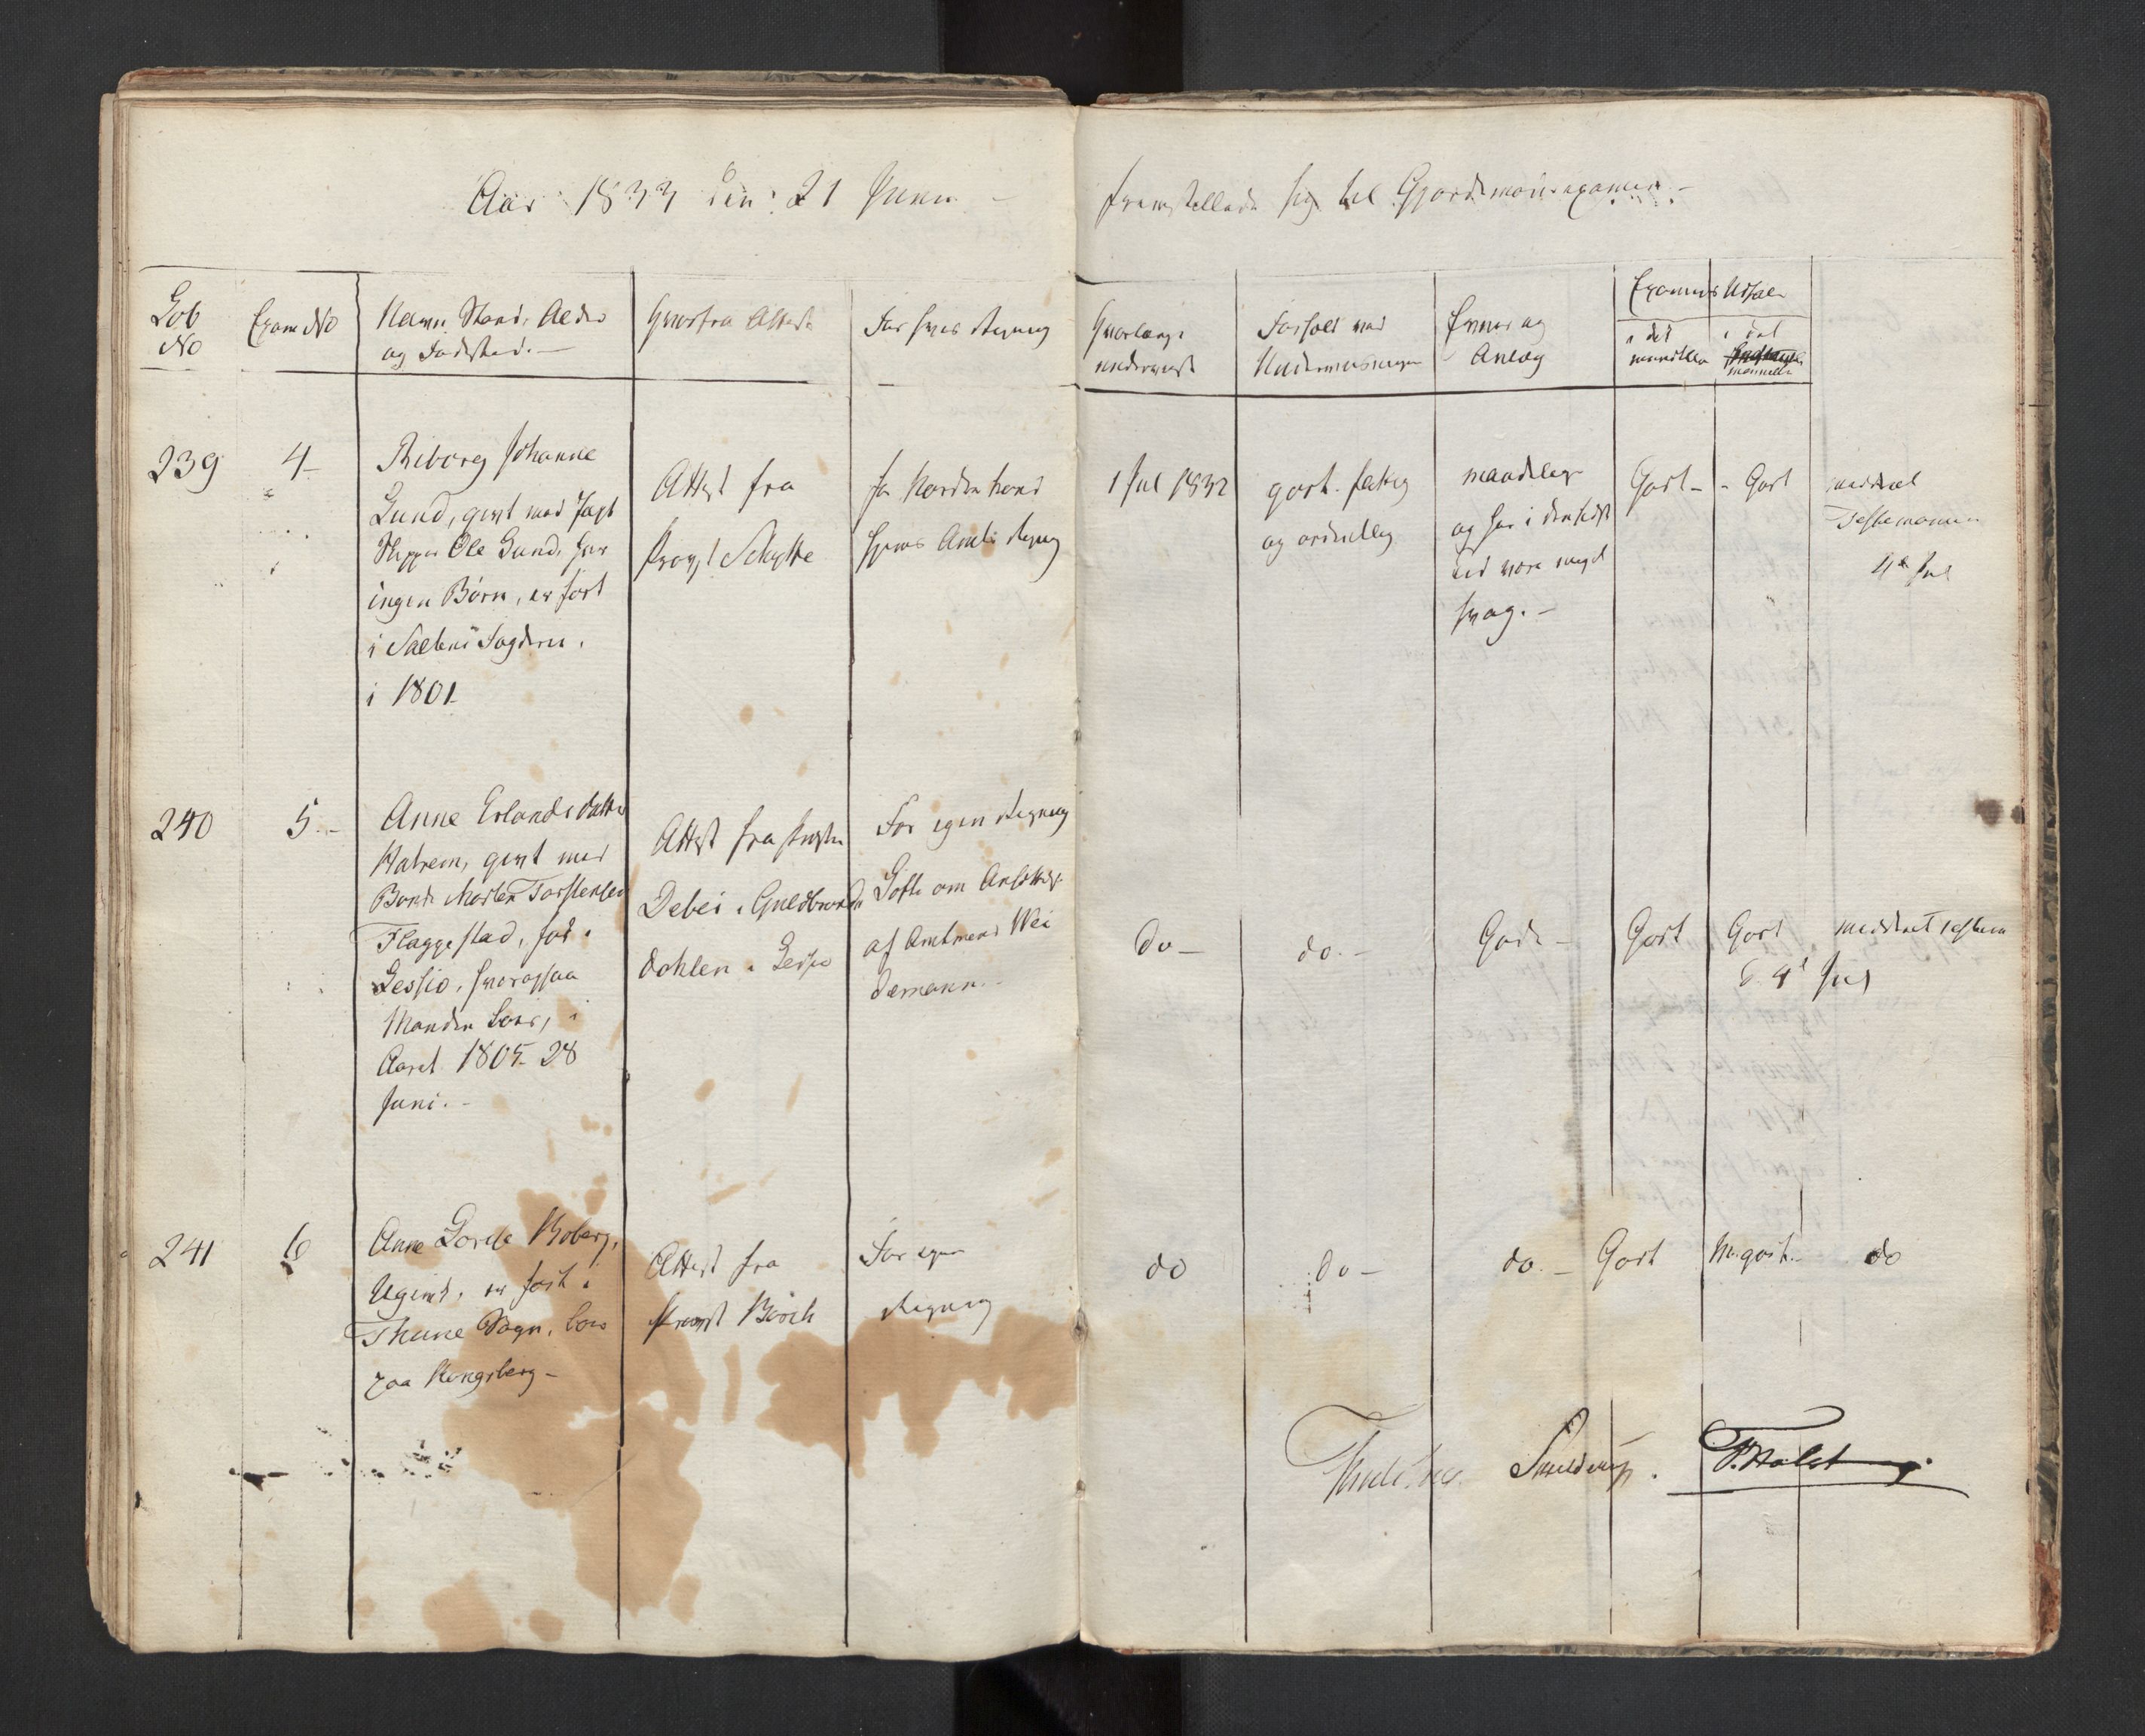 Aar 1833 den 21 Juni
fremstillede sig til Gjordemoderexamen.
Løb No
Exam No
Navn, Stand, Alder
og Fødested.
Hvorfra Attest
For hvis Regning
Hvorlænge
underviist
Forhold ved
Underviisningen
Evner og
Anlæg
Examens Udfald
i det
mundtlige
i det
manuelle
239
4
Riborg Johanne
Lund, givt med Jagt
Skipper Ole Lund, har
ingen Børn, er født
i Saltens Fogderie.
i 1801
Attest fra
Provst Schytte
for Nordre Trond
hjems Amts Regning
1 Juli 1832
godt. flittig
og ordentlig
maadelige
og har i den sidste
tid være meget
svag.
Godt
Godt
meddeelt
Testemonium
4de Juli
240
5
Anne Erlandsdatter
givt med
Bonde Morten Torstensen
Flaggestad, fød i
Lessio, hvorogsaa
Manden boer, i
Aaret 1805 28
Juni.
Attest fra Præsten
Debes i Guldbrands
dahlen i Lessio
For egen Regning
Løfte om Ansættelse
af Amtmand Wei
demann.
do
do.
Gode
Godt
Godt
meddeelt Testem
d. 4de Juli
241
6
Anne Boberg,
Ugivt, er født i
Thune Sogn, boer
paa Kongsberg
Attest fra
Provst Börch
For egen
Regning
do
do
do.
Godt
M. godt.
do
Thulstrup.
Skjelderup.
F. Holst